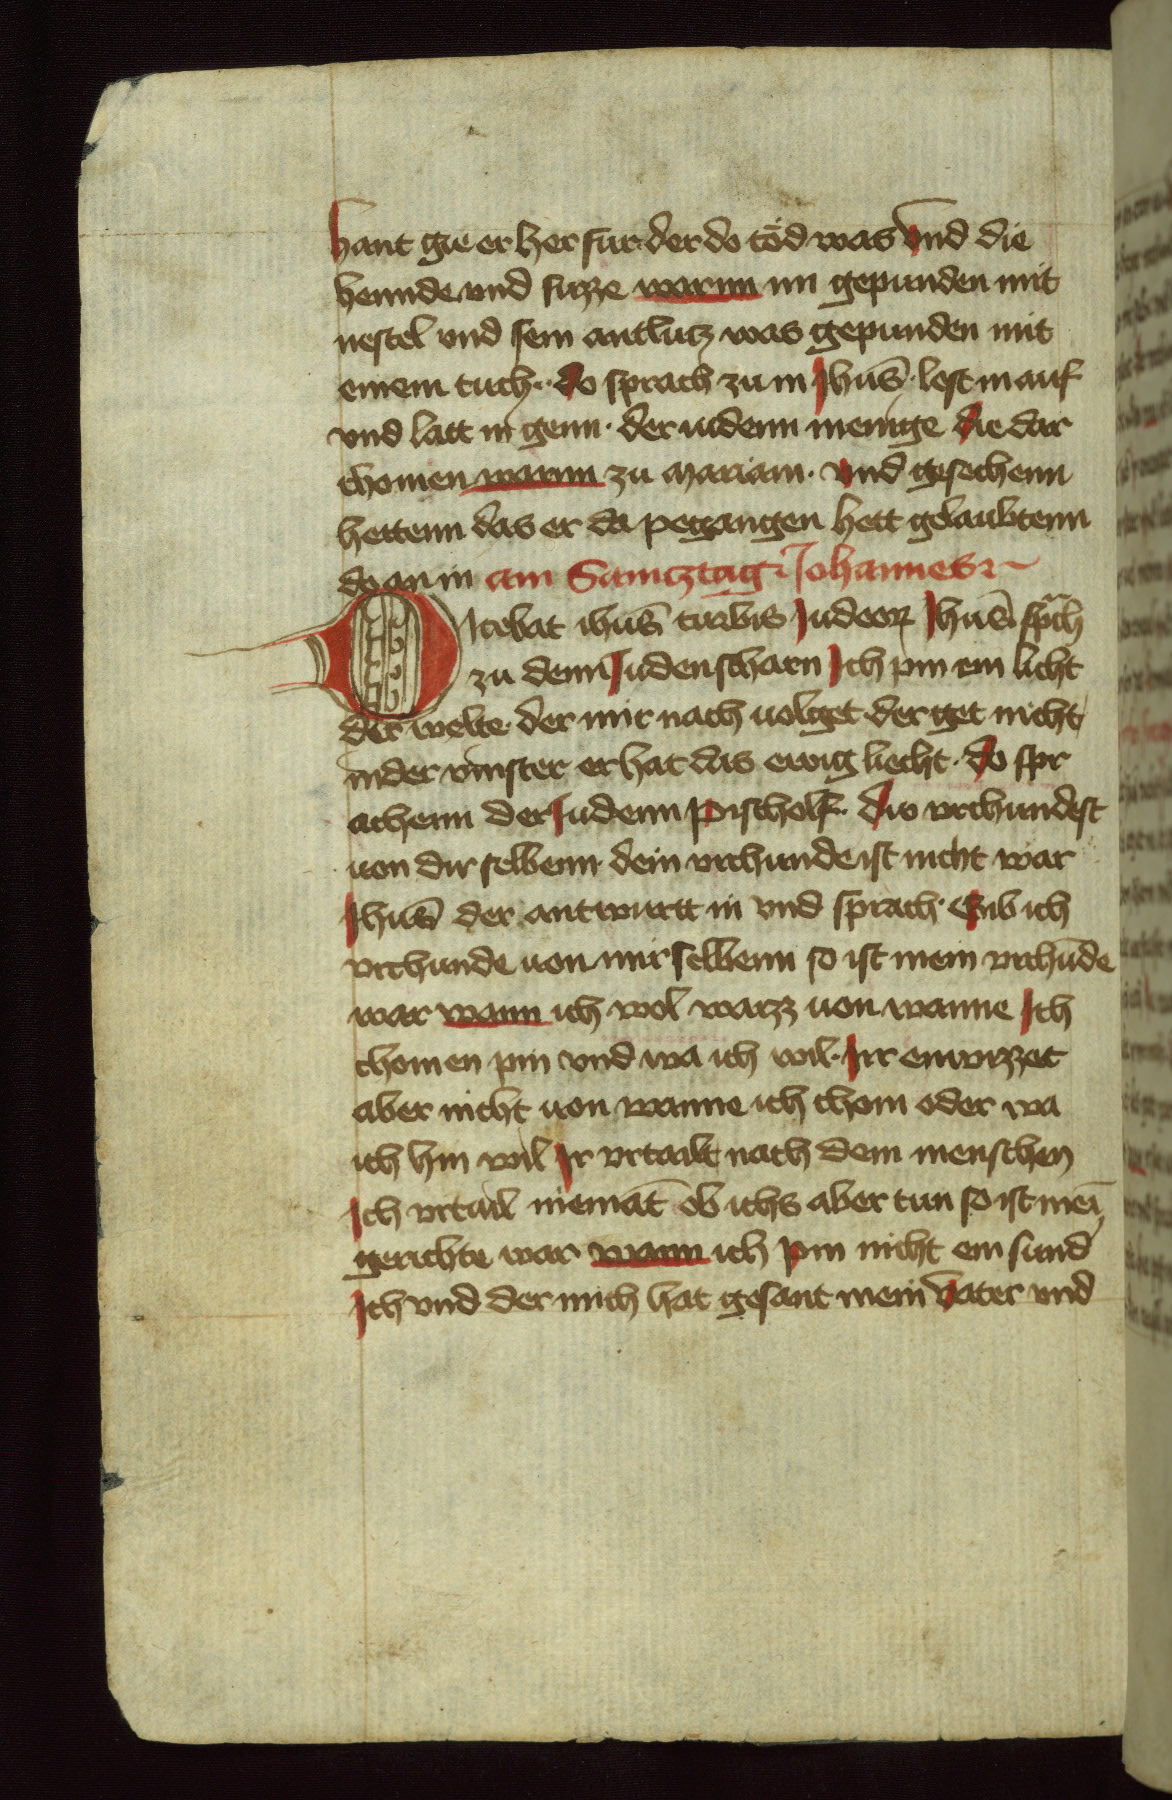 hant gie er her fur der do tod was vnd die
hennde vnd fuzze warnn im gepunden mit
nestel vnd sein antlutz was gepunden mit
einem tuch· do sprach zu in Jhus̄· lost in auf
vnd latt in genn· der iudenn menige die dar
chomen warnn zu Mariam· vnd gesechenn
hettenn das er da pegangen hett gelaubtenn
do an in am Samcztag Johannes
Dicebat ihus̄ turbis Judeoꝝ Jhus̄ sp̄ch
zu denn Judenscharn Ich pin ein licht
der welte· der mir nach uolget der get nicht
in der vinster er hat das ewig liecht· do spr
achenn der Judenn pischolf· Div vrchundest
uon dir selbenn· dein vrchunde ist nicht war
Jhus̄ der antwurtt in vnd sprach· Gib ich
vrchunde uon mir selbenn so ist mein vrchūde
war wann ich wol waizz uon wanne Ich
chomen pin vnd wa ich wil· Irr enwizzet
aber nicht uon wanne ich chom oder wa
ich hin wil Ir vrtailt nach dem menschen
Ich vrtail niemāt ob ichs aber tun so ist mei͂
gerichte war wann ich pin nicht ein sund
Ich vnd der mich hat gesant mein Vater vnd